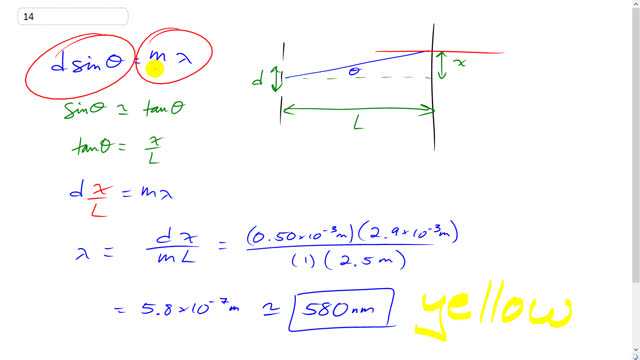 14
d sinθ = m λ
sinθ ≃ tanθ
tanθ = x/L
d x/L = mλ
λ = d x / m L = (0.50×10⁻³m)(2.9×10⁻³m) / (1)(2.5m)
= 5.8×10⁻⁷m ≃ 580nm
yellow
d
θ
x
L